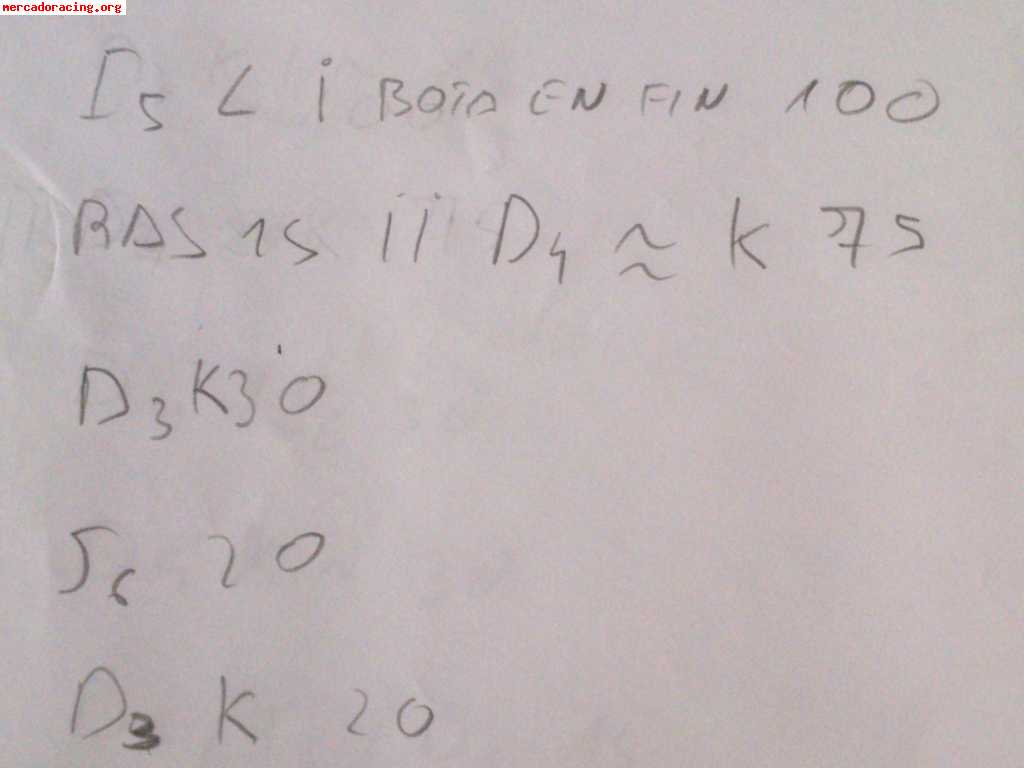 mercadoracing.org
I5 < i BOTA EN FIN 100
RAS 15 ii D4 ≈ K 75
D3 K30
S6 20
D3 K 20